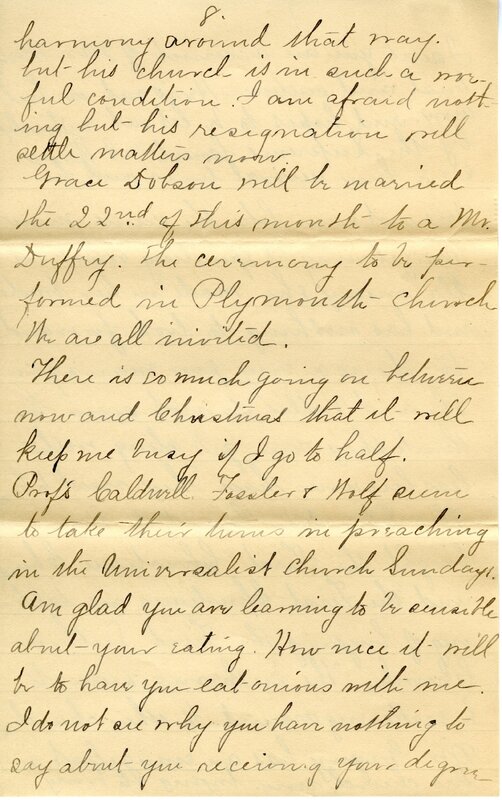 8
harmony around that way.
but his church is in such a wo-
ful condition. I am afraid noth-
ing but his resignation will
settle matters now.
Grace Dobson will be married
the 22nd of this month to a Mr.
Duffry. The ceremony to be per-
formed in Plymouth church
We are all invited.
There is so much going on between
now and Christmas that it will
keep me busy if I go to half.
Profs Caldwell Fossler & Wolf seem
to take their turns in preaching
in the Universalist church Sundays.
Am glad you are learning to be sensible
about your eating. How nice it will
be to have you eat onions with me.
I do not see why you have nothing to
say about you receiving your degree